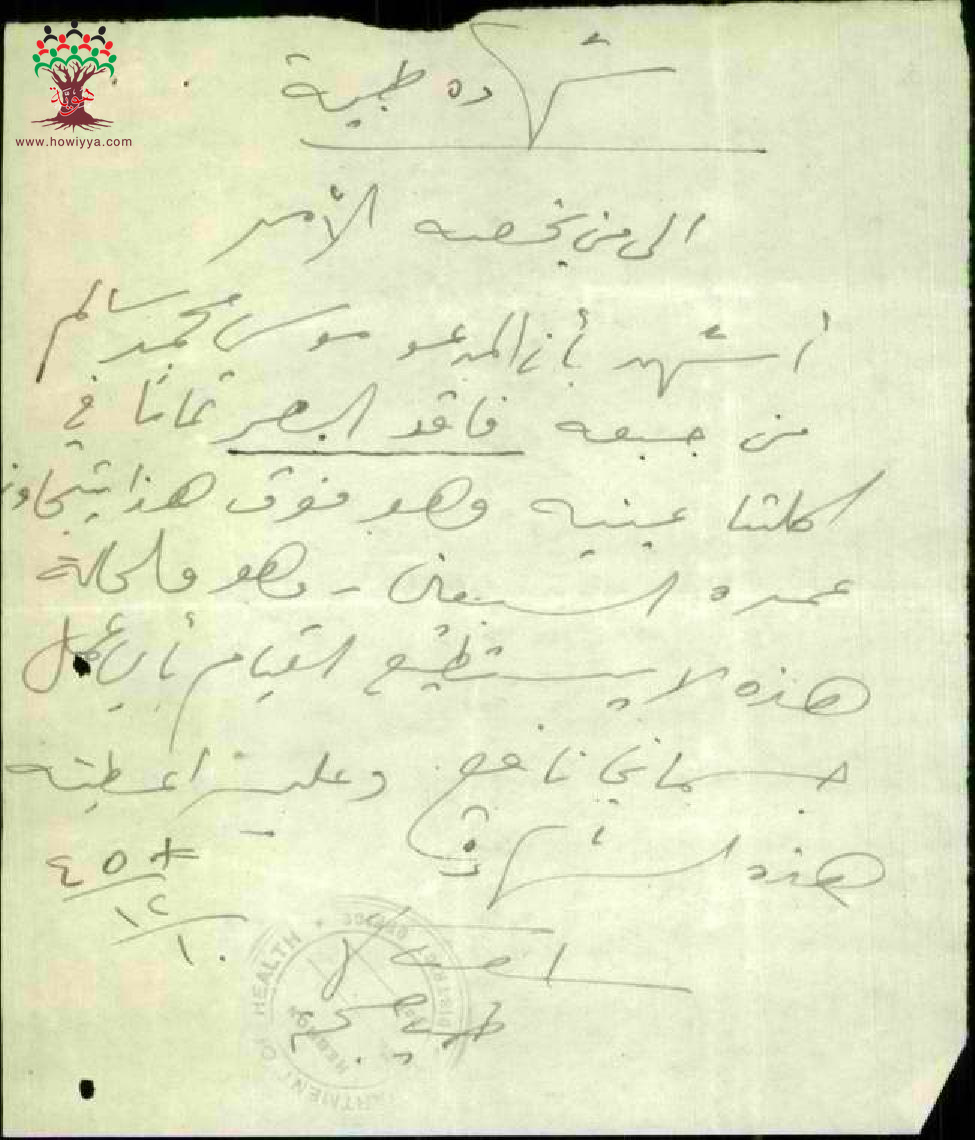 هوية
www.howiyya.com
شهاده طبية
الى من يخصه الأمر
أشهد بأن المدعو موسى محمد سالم
من جبعه فاقد البصر تمامًا في
كلتا عينيه وهو فوق هذا يتجاوز
عمره السبعين - وهو والحالة
هذه لا يستطيع القيام بأي عمل
جسماني نافع وعليه اعطيته
هذه الشهادة
١٢
١٠
طبيب
DEPARTMENT OF HEALTH
DISTRICT